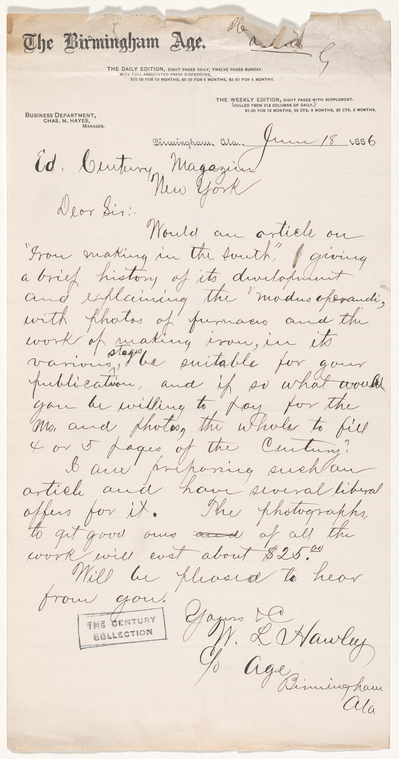 The Birmingham Age.
THE DAILY EDITION, EIGHT PAGES DAILY, TWELVE PAGES SUNDAY.
WITH FULL ASSOCIATED PRESS DISPATCHES.
$10.00 FOR 12 MONTHS, $5.00 FOR 6 MONTHS, $2.50 FOR 3 MONTHS.
THE WEEKLY EDITION, EIGHT PAGES WITH SUPPLEMENT.
(CULLED FROM 312 COLUMNS OF DAILY.)
$1.00 FOR 12 MONTHS, 50 CTS. 6 MONTHS, 25 CTS. 3 MONTHS.
BUSINESS DEPARTMENT,
CHAS. M. HAYES,
MANAGER.
Birmingham, Ala., June 18 1886
Ed. Century Magazine
New York
Dear Sir:
Would an article on
"Iron making in the South", giving
a brief history of its development
and explaining the "modus operandi,"
with photos of furnaces and the
work of making iron, in its
various stages, be suitable for your
publication, and if so what would
you be willing to pay for the
Ms. and photos, the whole to fill
4 or 5 pages of the Century?
I am preparing such an
article and have several liberal
offers for it. The photographs,
to get good ones and of all the
work will cost about $25.00
Will be pleased to hear
from you.
Yours &C
THE CENTURY
COLLECTION
W. L. Hawley
c/o Age
Birmingham
Ala